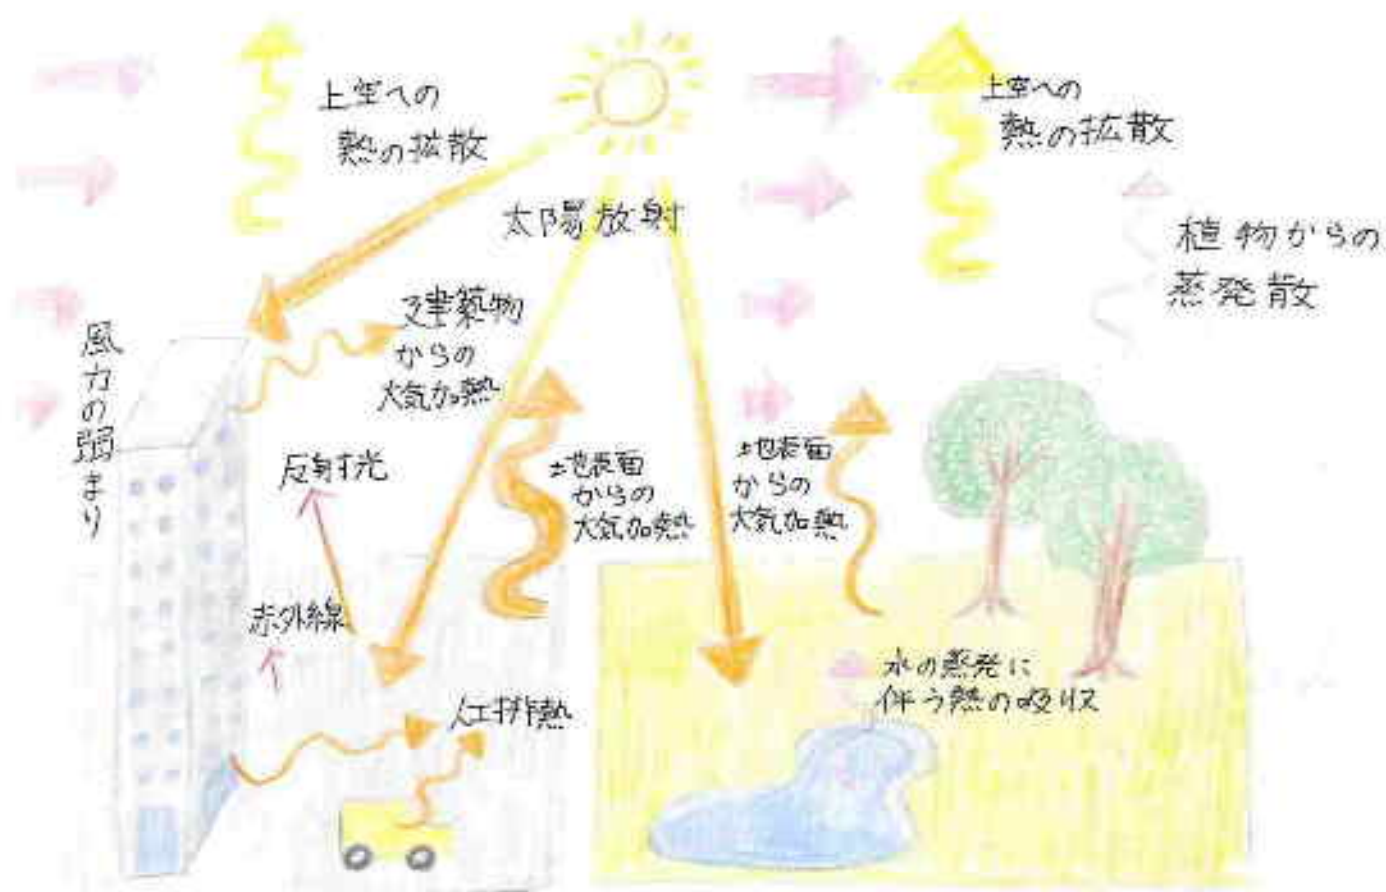 上空への
熱の拡散
太陽放射
上空への
熱の拡散
植物からの
蒸発散
風力の弱まり
建築物
からの
大気加熱
反射光
地表面
からの
大気加熱
地表面
からの
大気加熱
赤外線
人工排熱
水の蒸発に
伴う熱の吸収